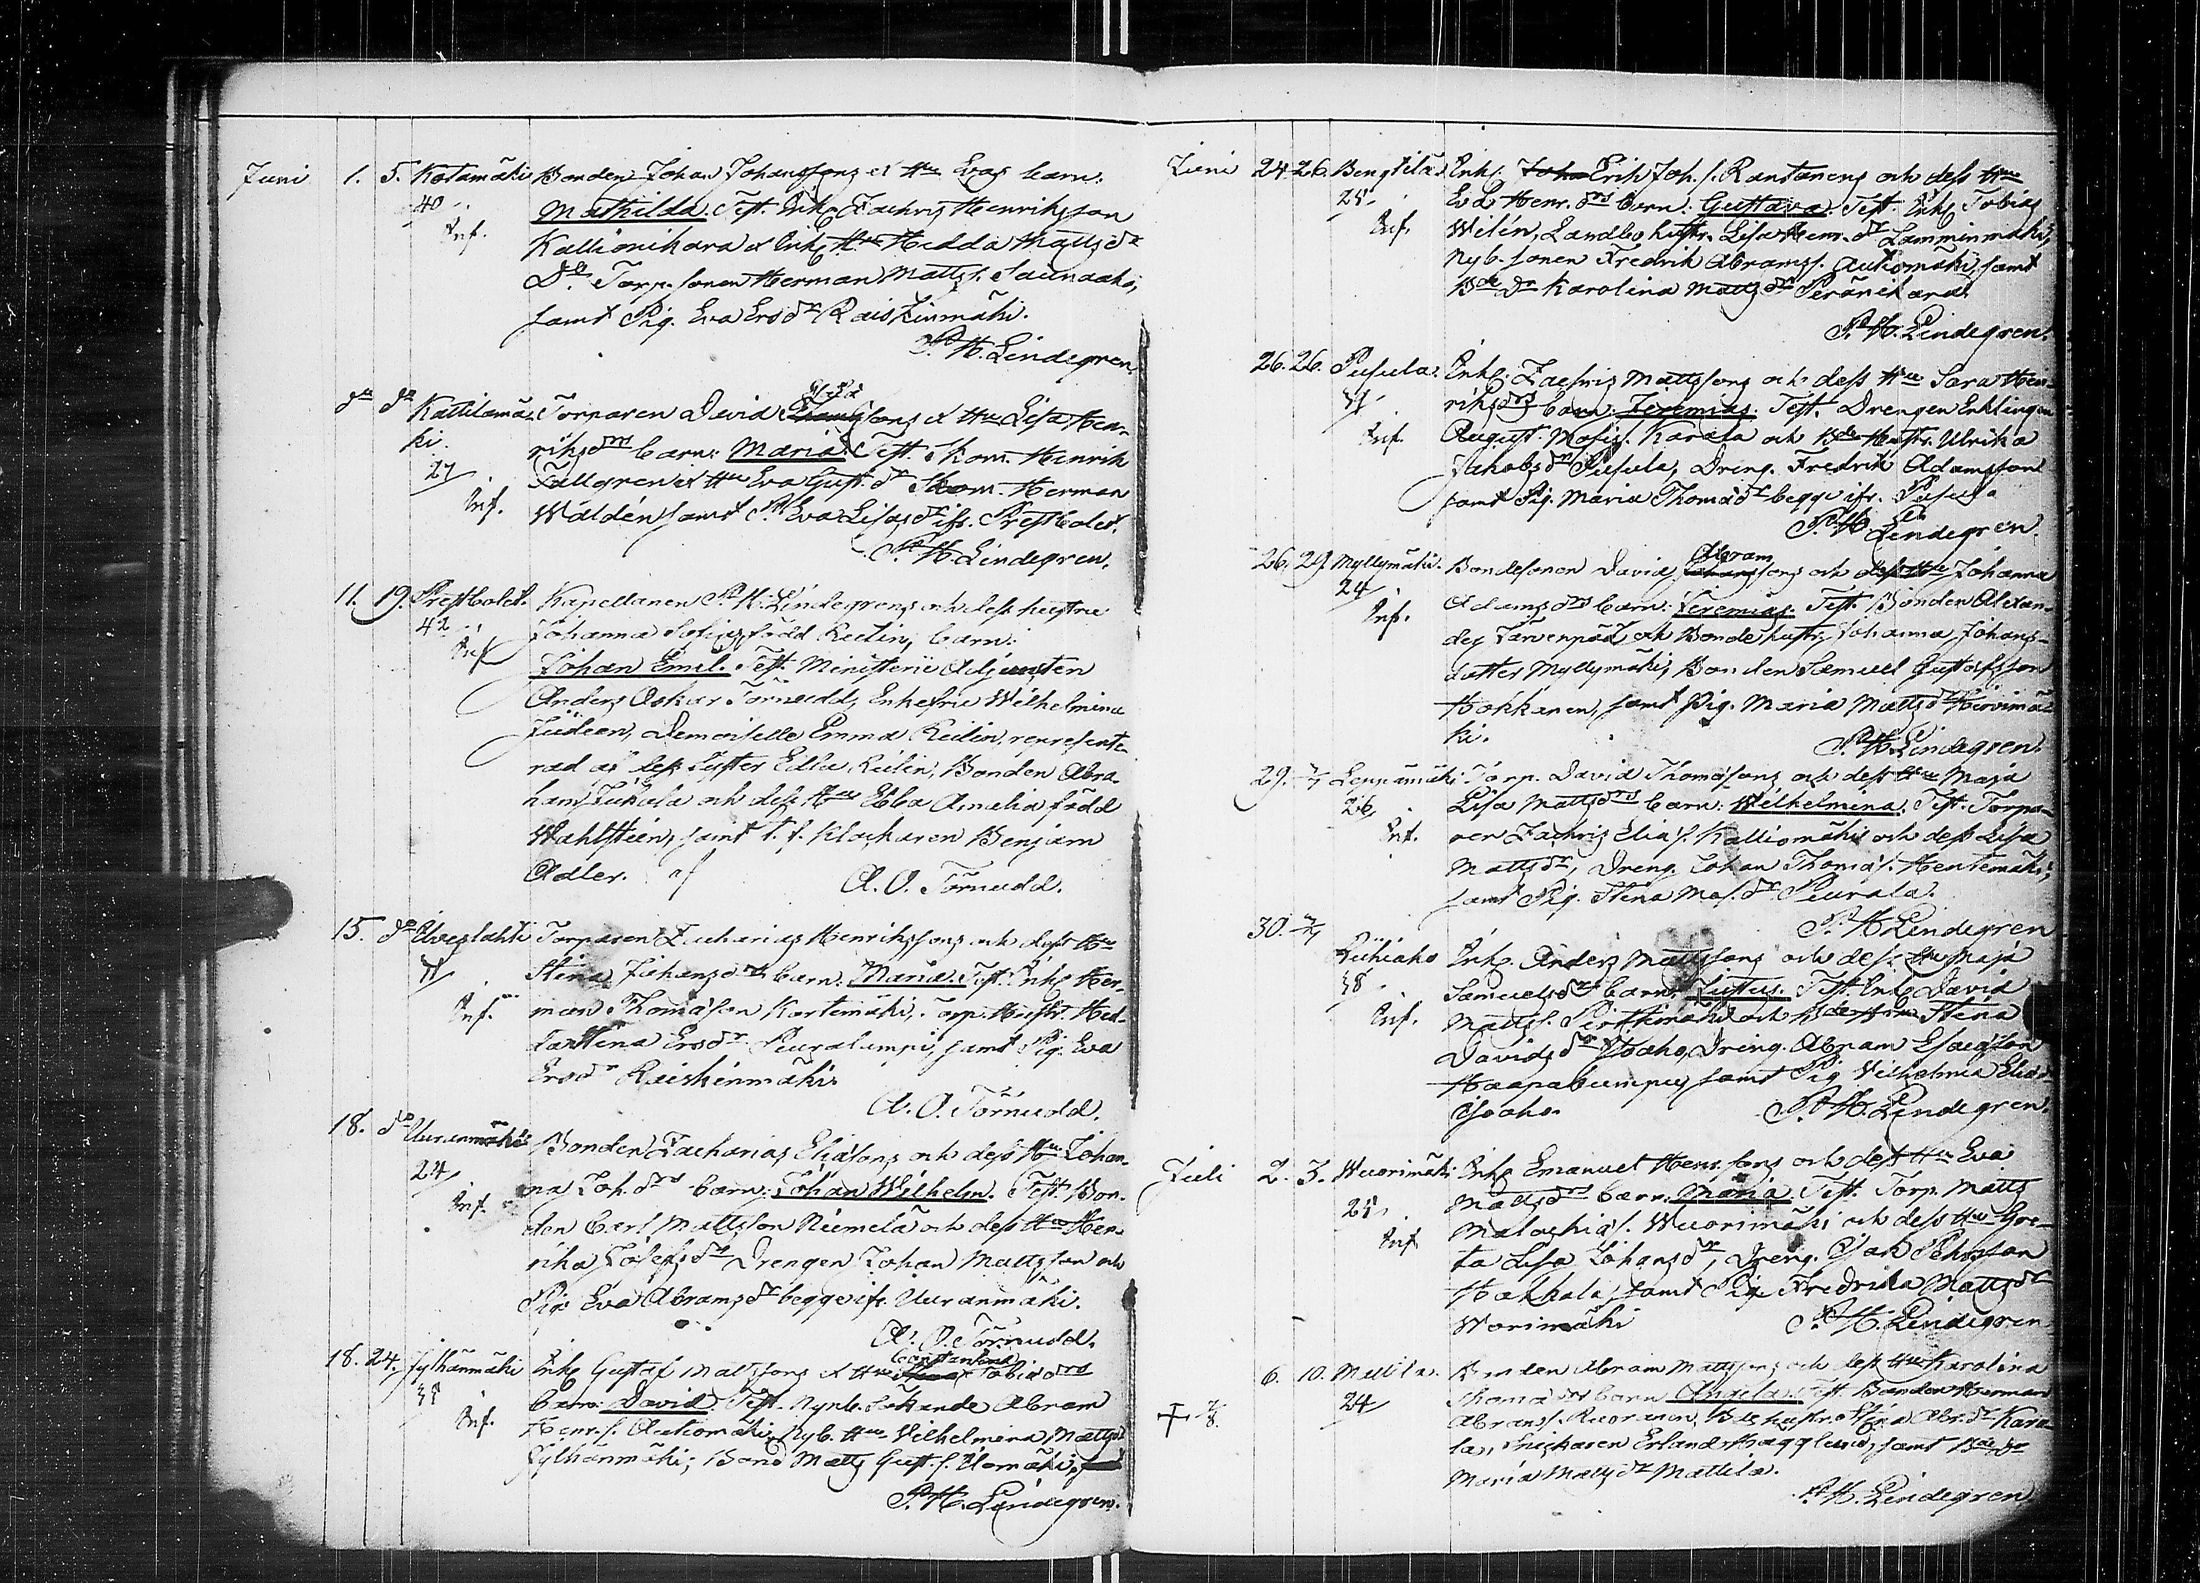 Juni 1. 5. Kotamäki Bonden Johan Johanssons et Hu Evas barn:
40 Mathilda. Test. Inh. Zachris Henriksson
Inf. Kallionikara et Inh. Hu Hedda Mattsdr
Do Torp. sonen Herman Mattss. Saunaaho,
samt Pig. Eva Ersdr Raiskinmäki.
P. H. Lindegren.
do do Kattilamä- Torparen David sons et Hu Lisa Hen-
ki. riksdrs barn: Maria. Test. Skom. Henrik
27 Tallgren et Hu Eva Gust.dr Skom. Herman
Inf. Waldén samt P. Eva Lisas dr ifr. Prestbolet.
P. H. Lindegren.
11. 19. Prestbolet. Kapellanen P. H. Lindegrens och dess hustru
42 Johanna Sofias född Reilin, barn:
Inf. Johan Emil. Test. Ministerii Adjunkten
Anders Oskar Törnudd, Enkefru Wilhelmina
Judeen, Demoiselle Emma Reilin, represente-
rad af dess Syster Edla Reilin, Bonden Abra-
ham och dess Hu Ebba Amalia född
Wahlsteén, samt t. f. Klockaren Benjam
Adler. af A. O. Törnudd.
15. do Elveslahti Torparen Zacharias Henrikssons och dess Hu
Stina Johansdrs barn: Maria. Test. Inh. Her-
Inf. man Thomasson Kortemäki, Torp. Hustr. Hed-
da Stina Ersdr Peuralampi, samt Pig. Eva
Ersdr Raiskinmäki
A. O. Törnudd.
18. do Uuranmäki Bonden Zacharias Eliassons och dess Hu Johan-
24 na Joh.drs barn: Johan Wilhelm. Test. Bon-
Inf. den Carl Mattsson Niemelä och dess Hu Hen-
rika Josefsdr Drengen Johan Mattsson och
Pig. Eva Abramsdr begge ifr. Uuranmäki.
A. O. Törnudd.
Constantina
18. 24. Jylhänmäki Inh. Gustaf Mattssons et Hu Tobiasdrs
barn: David. Test. Nyb. Sökande Abram
Inf. Henr.s. Autiomäki, Nyb. Hu Wilhelmina Mattsdr
Jylhänmäki; Bond Matts Gust.s. Ulomäki,
P. H. Lindegren.
Juni 24. 26. Bengtilä Inh. Erik Joh.s. Rantanens och dess Hu
25 Eva Henr.drs barn: Gustava. Test. Inh. Tobias
Inf. Wilén, Landbo hustr. Lisa Henr.dr Lamminmäki,
Nyb. sonen Fredrik Abramss. Autiomäki, samt
Bdedr Karolina Mattsdr Peränikara
P. H. Lindegren.
26. 26. Pusula. Inh. Zachris Mattssons och dess Hu Sara Hen-
riksdrs barn: Jeremias. Test. Drengen Enklingen
Inf. August Mosiss. Karala och Bde Hustr. Ulrika
Jakobsdr Pusula, Dreng. Fredrik Adamsson
samt Pig. Maria Thomasdr begge ifr. Pusula
P. H. Lindegren.
Abram
26. 29. Myllymäki. Bondesonen David sons och dess Hu Johanna
24 Adamsdrs barn: Jeremias. Test. Bonden Alexan-
Inf. der Tarvenpää och Bonde hustr. Johanna Johans-
dotter Myllymäki, Bonden Samuel Gustafsson
Hokkanen, samt Pig. Maria Mattsdr Hirvimä-
ki.
P. H. Lindegren.
29. Leppämäki Torp. David Thomassons och dess Hu Maja
26 Lisa Mattsdrs barn: Wilhelmina. Test. Torpa-
Inf. ren Zachris Elias s. Kalliomäki och dess Lisa
Mattsdr, Dreng. Johan Thomas s. Hentemäki,
samt Pig. Stina Mos.dr Peurala.
P. H. Lindegren
30. Riihiaho Inh. Anders Mattssons och dess Hu Maja
38 Samuelsdrs barn: Justus. Test. Inh. David
Inf. Mattss. och Bde Hu Stina
Davidsdr Isoaho, Dreng. Abram Esaiasson
Haapakumpu, samt Pig. Wilhelmina Eliasdr
Isoaho.
P. H. Lindegren.
Juli 2. 3. Wuorimäki Inh. Emanuel Henr.sons och dess Hu Eva
25 Mattsdrs barn: Maria. Test. Torp. Matts
Inf. Malachias s. Wuorimäki och dess Hu Gre-
ta Lisa Johansdr, Dreng. Isak Pehrsson
Hakkala, samt Pig. Fredrika Mattsdr
Worimäki
P. H. Lindegren
6. 10. Mattila. Bonden Abram Mattssons och dess Hu Karolina
24 Thomasdrs barn Angela. Test. Bonden Herman
Abramss. Ruoranen, Bde hustr. Stina Abr.dr Kara-
la, Snickaren Erland Hägglund, samt Bdedr
Maria Mattsdr Mattila.
P. H. Lindegren